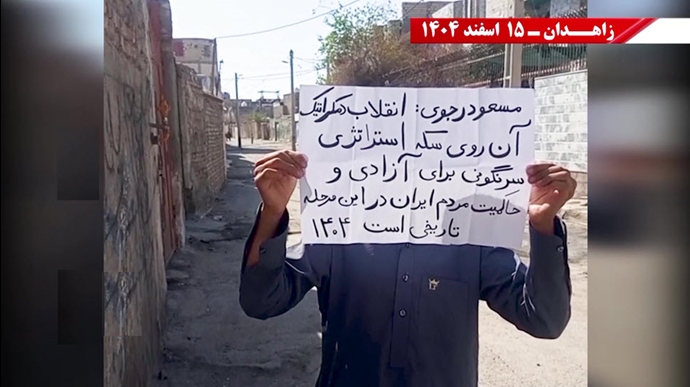 زاهـدان ــ ۱۵ اسفند ۱۴۰۴
مسعود رجوی: انقلاب دمکراتیک
آن روی سکه استراتژی
سرنگونی برای آزادی و
حاکمیت مردم ایران در این مرحله
تاریخی است ۱۴۰۴